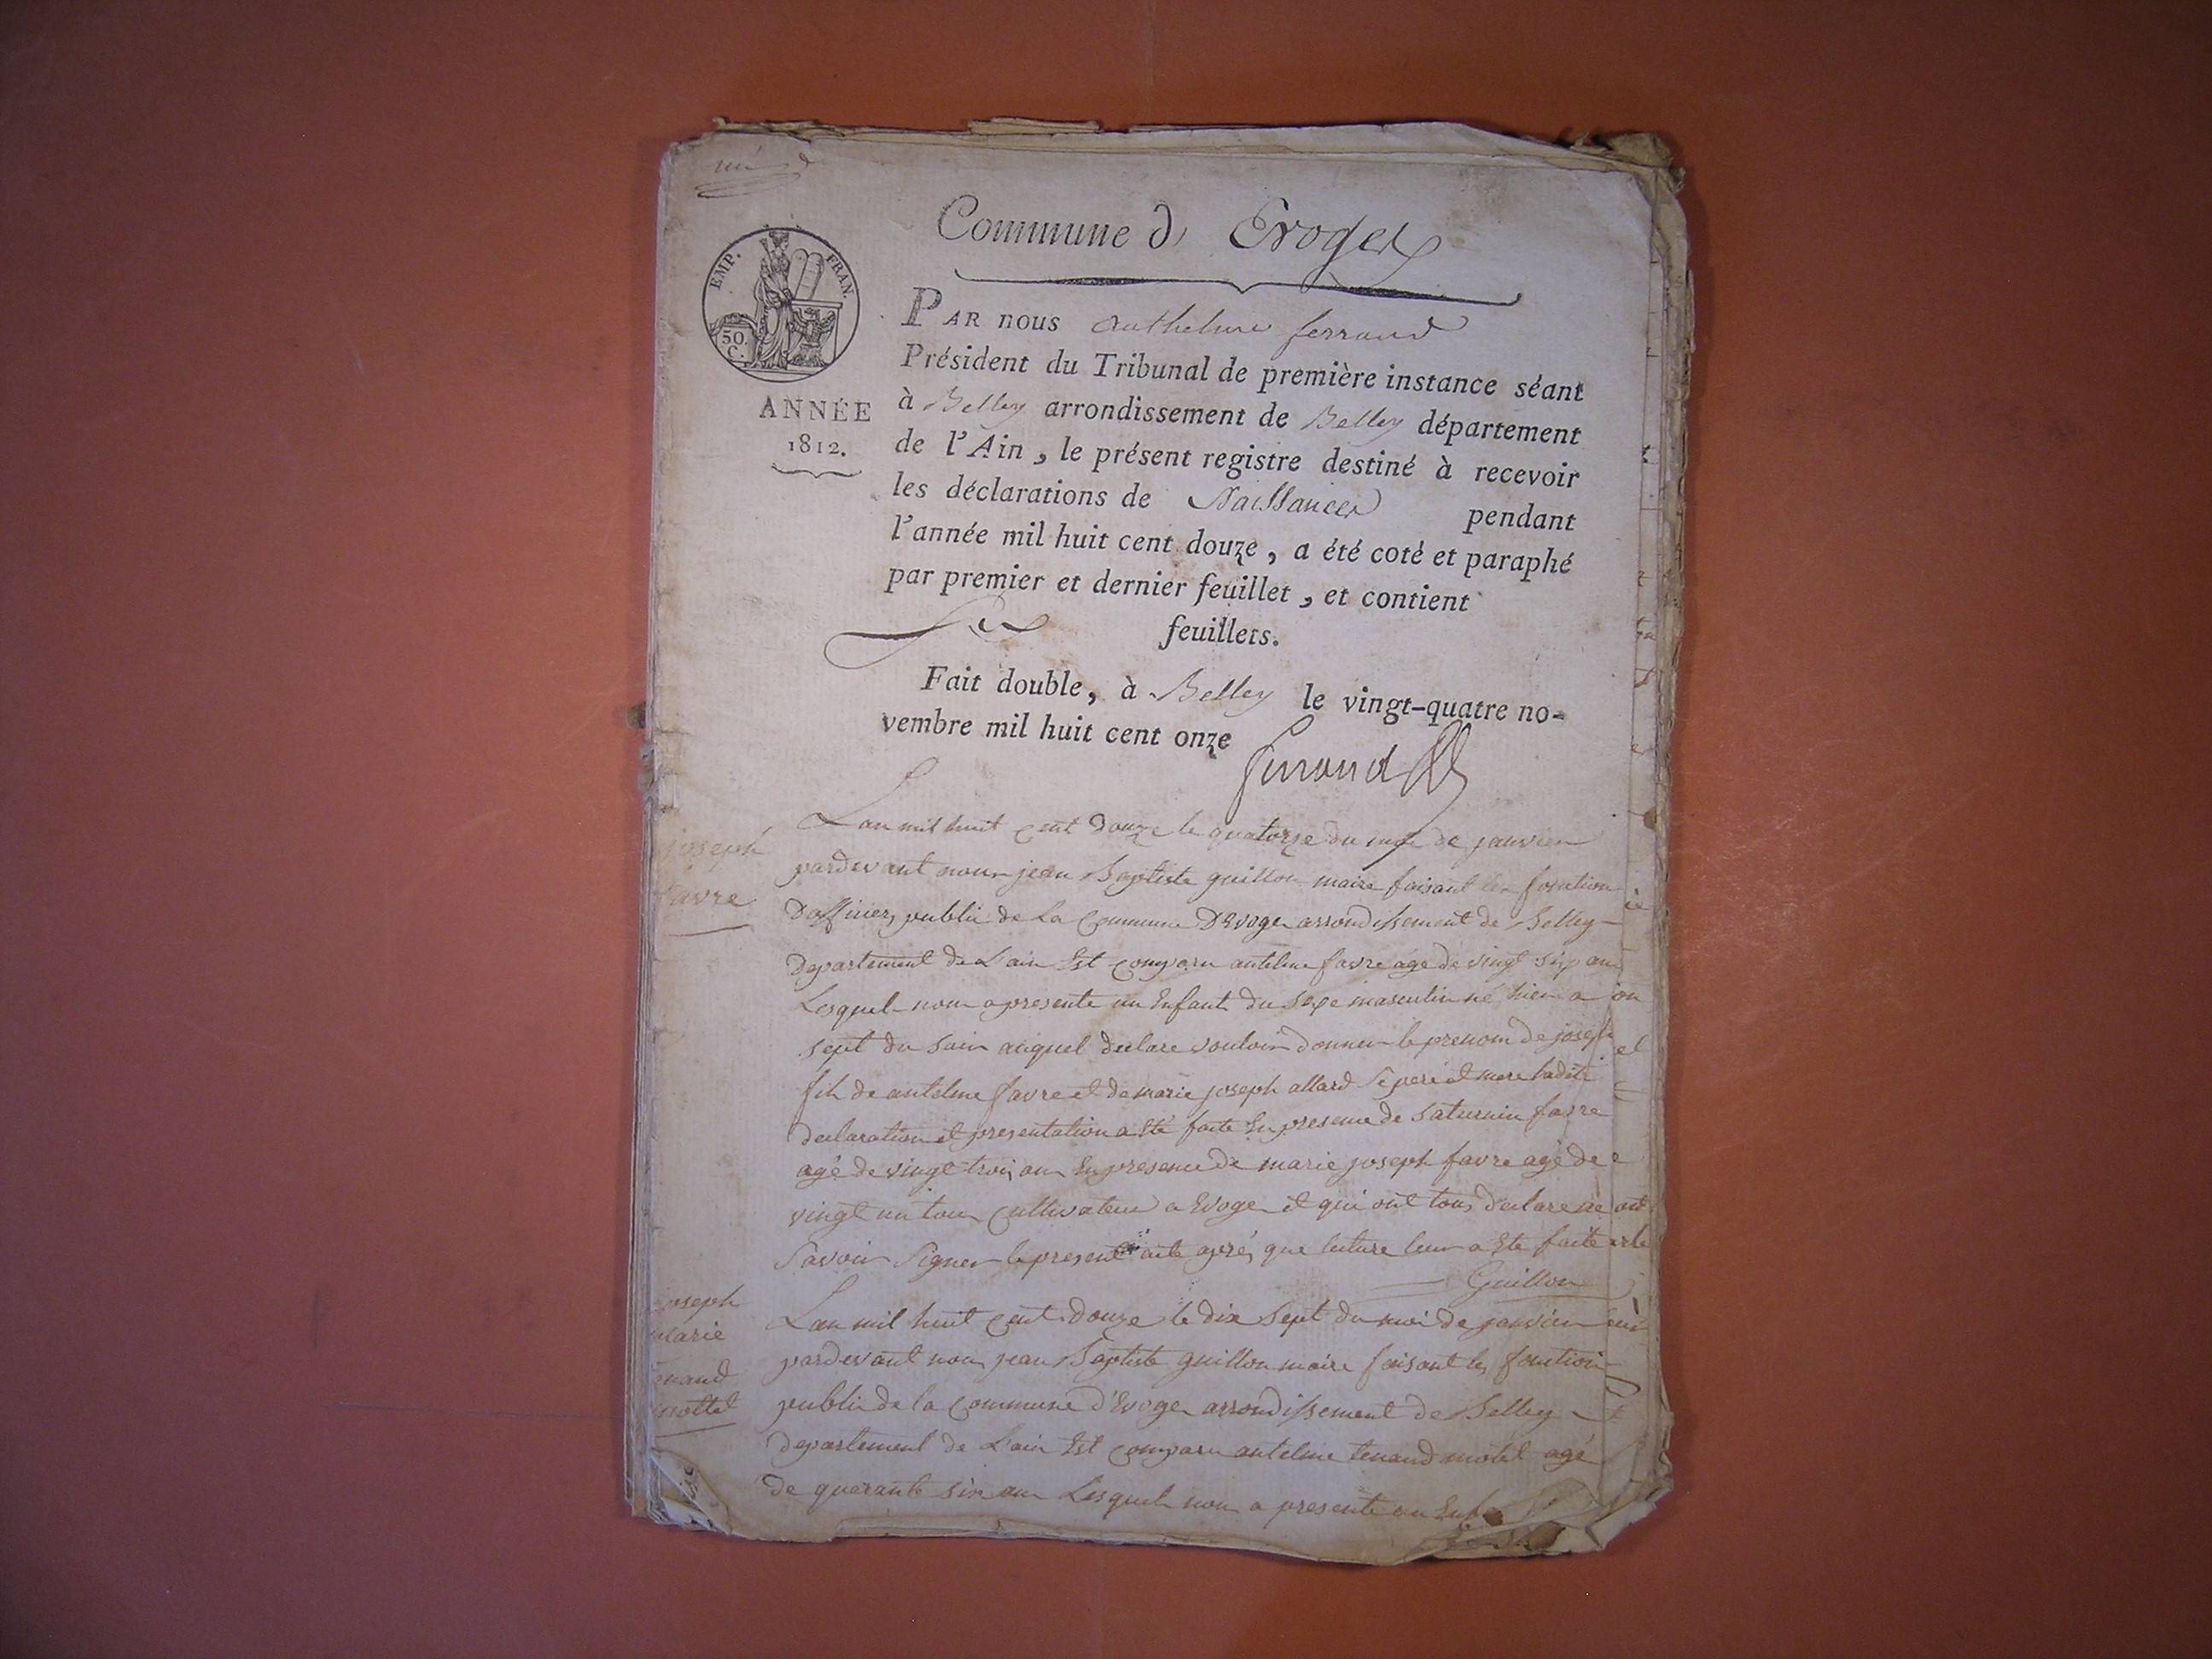 Commune d' Evoges
EMP. FRAN.
50.
C.
ANNÉE
1812.
PAR nous anthelme ferrand
Président du Tribunal de première instance séant
à Belley arrondissement de Belley département
de l'Ain, le présent registre destiné à recevoir
les déclarations de Naissances pendant
l'année mil huit cent douze, a été coté et paraphé
par premier et dernier feuillet, et contient
six feuillets.
Fait double, à Belley le vingt-quatre no-
vembre mil huit cent onze
ferrand
joseph
favre
Lan mil huit cent douze le quatorze du mois de janvier
pardevant nous jean Baptiste guillon maire faisant les fonction
Dofficier publie de La Commune DEvoge arrondissement de Belley
Departement de L'ain Est comparu antelme favre agé de vingt six ans
Lesquel nous a presente un Enfant du sexe masculin né hier a
sept du soir auquel declare vouloir donner le prenom de joseph
fils de antelme favre et de marie joseph allard Se pere et mere Ladite
declaration et presentation a Eté faite En presence de Saturnin favre
agé de vingt trois ans En presence de marie joseph favre agé de
vingt un tous cultivateur a Evoge et qui ont tous declare ne
Savoir Signer le present acte aprés que lecture leur a Eté faite
Guillon
joseph
marie
tenand
mottel
Lan mil huit cent Douze le dix Sept du moi de janvier
pardevant nous jean Baptiste guillon maire faisant les fonction
publie de la Commune d'Evoge arrondissement de Belley
departement de L'ain Est comparu antelme tenand motel agé
de quarante six ans Lesquel nous a presente un Enf